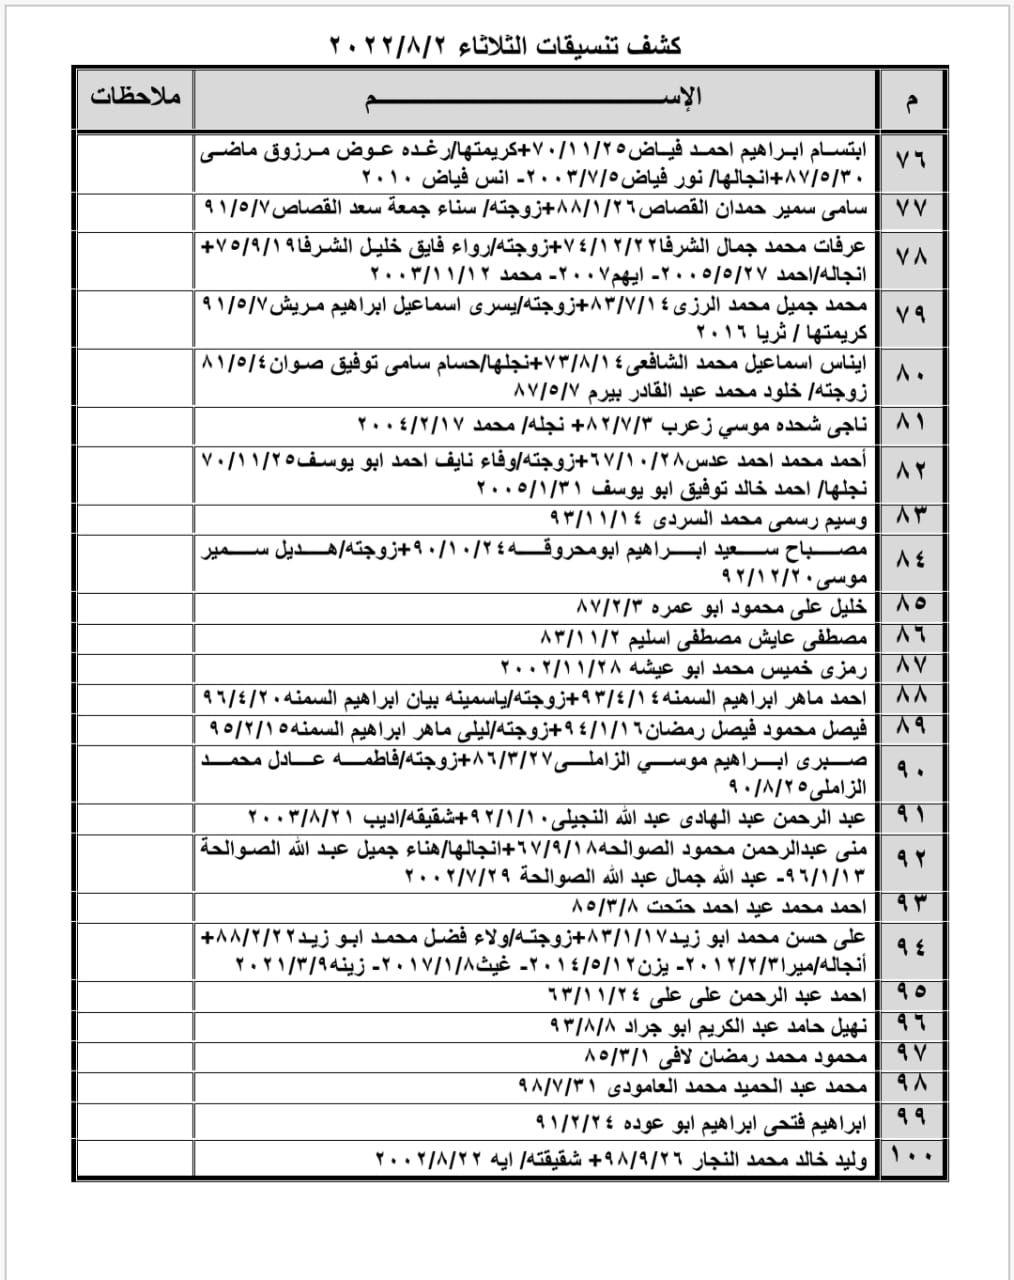 كشف تنسيقات الثلاثاء ٢٠٢٢/٨/٢
م الإســـــم ملاحظات
٧٦ ابتسام ابراهيم احمد فياض٧٠/١١/٢٥+كريمتها/رغده عوض مرزوق ماضى
٨٧/٥/٣٠+انجالها/ نور فياض٢٠٠٣/٧/٥- انس فياض ٢٠١٠
٧٧ سامى سمير حمدان القصاص٨٨/١/٢٦+زوجته/ سناء جمعة سعد القصاص٩١/٥/٧
٧٨ عرفات محمد جمال الشرفا٧٤/١٢/٢٢+زوجته/رواء فايق خليل الشرفا٧٥/٩/١٩+
انجاله/احمد ٢٠٠٥/٥/٢٧- ايهم٢٠٠٧- محمد ٢٠٠٣/١١/١٢
٧٩ محمد جميل محمد الرزى٨٣/٧/١٤+زوجته/يسرى اسماعيل ابراهيم مريش٩١/٥/٧
كريمتها / ثريا ٢٠١٦
٨٠ ايناس اسماعيل محمد الشافعى٧٣/٨/١٤+نجلها/حسام سامى توفيق صوان٨١/٥/٤
زوجته/ خلود محمد عبد القادر بيرم ٨٧/٥/٧
٨١ ناجى شحده موسي زعرب ٨٢/٧/٣+ نجله/ محمد ٢٠٠٤/٢/١٧
٨٢ أحمد محمد احمد عدس٦٧/١٠/٢٨+زوجته/وفاء نايف احمد ابو يوسف٧٠/١١/٢٥
نجلها/ احمد خالد توفيق ابو يوسف ٢٠٠٥/١/٣١
٨٣ وسيم رسمى محمد السردى ٩٣/١١/١٤
٨٤ مصباح سعيد ابراهيم ابومحروقه٩٠/١٠/٢٤+زوجته/هديل سمير
موسى٩٢/١٢/٢٠
٨٥ خليل على محمود ابو عمره ٨٧/٢/٣
٨٦ مصطفى عايش مصطفى اسليم ٨٣/١١/٢
٨٧ رمزى خميس محمد ابو عيشه ٢٠٠٢/١١/٢٨
٨٨ احمد ماهر ابراهيم السمنه٩٣/٤/١٤+زوجته/ياسمينه بيان ابراهيم السمنه٩٦/٤/٢٠
٨٩ فيصل محمود فيصل رمضان٩٤/١/١٦+زوجته/ليلى ماهر ابراهيم السمنه٩٥/٢/١٥
٩٠ صبرى ابراهيم موسي الزاملى٨٦/٣/٢٧+زوجته/فاطمه عادل محمد
الزاملى٩٠/٨/٢٥
٩١ عبد الرحمن عبد الهادى عبد الله النجيلى٩٢/١/١٠+شقيقه/اديب ٢٠٠٣/٨/٢١
٩٢ منى عبدالرحمن محمود الصوالحه٦٧/٩/١٨+انجالها/هناء جميل عبد الله الصوالحة
٩٦/١/١٣- عبد الله جمال عبد الله الصوالحة ٢٠٠٢/٧/٢٩
٩٣ احمد محمد عيد احمد حتحت ٨٥/٣/٨
٩٤ على حسن محمد ابو زيد٨٣/١/١٧+زوجته/ولاء فضل محمد ابو زيد٨٨/٢/٢٢+
أنجاله/ميرا٢٠١٢/٢/٣- يزن٢٠١٤/٥/١٢- غيث٢٠١٧/١/٨- زينه٢٠٢١/٣/٩
٩٥ احمد عبد الرحمن على على ٦٣/١١/٢٤
٩٦ نهيل حامد عبد الكريم ابو جراد ٩٣/٨/٨
٩٧ محمود محمد رمضان لافى ٨٥/٣/١
٩٨ محمد عبد الحميد محمد العامودى ٩٨/٧/٣١
٩٩ ابراهيم فتحى ابراهيم ابو عوده ٩١/٢/٢٤
١٠٠ وليد خالد محمد النجار ٩٨/٩/٢٦+ شقيقته/ ايه ٢٠٠٢/٨/٢٢